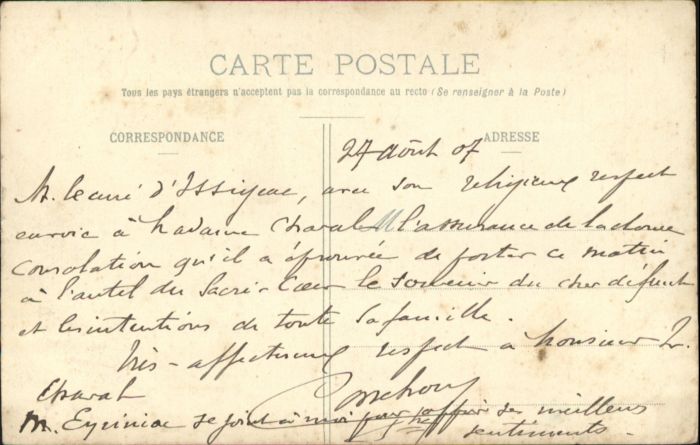 CARTE POSTALE
Tous les pays étrangers n'acceptent pas la correspondance au recto (Se renseigner à la Poste)
CORRESPONDANCE
ADRESSE
27 août 07
M. le curé d'Issigeac, avec son religieux respect
envoie à Madame l'assurance de la douce
Consolation qu'il a éprouvée de porter ce matin
à l'autel du Sacré-Cœur le souvenir du cher défunt
et les intentions de toute sa famille.
Très-affectueux respect à Monsieur
M. se joint à moi pour offrir ses meilleurs
sentiments.